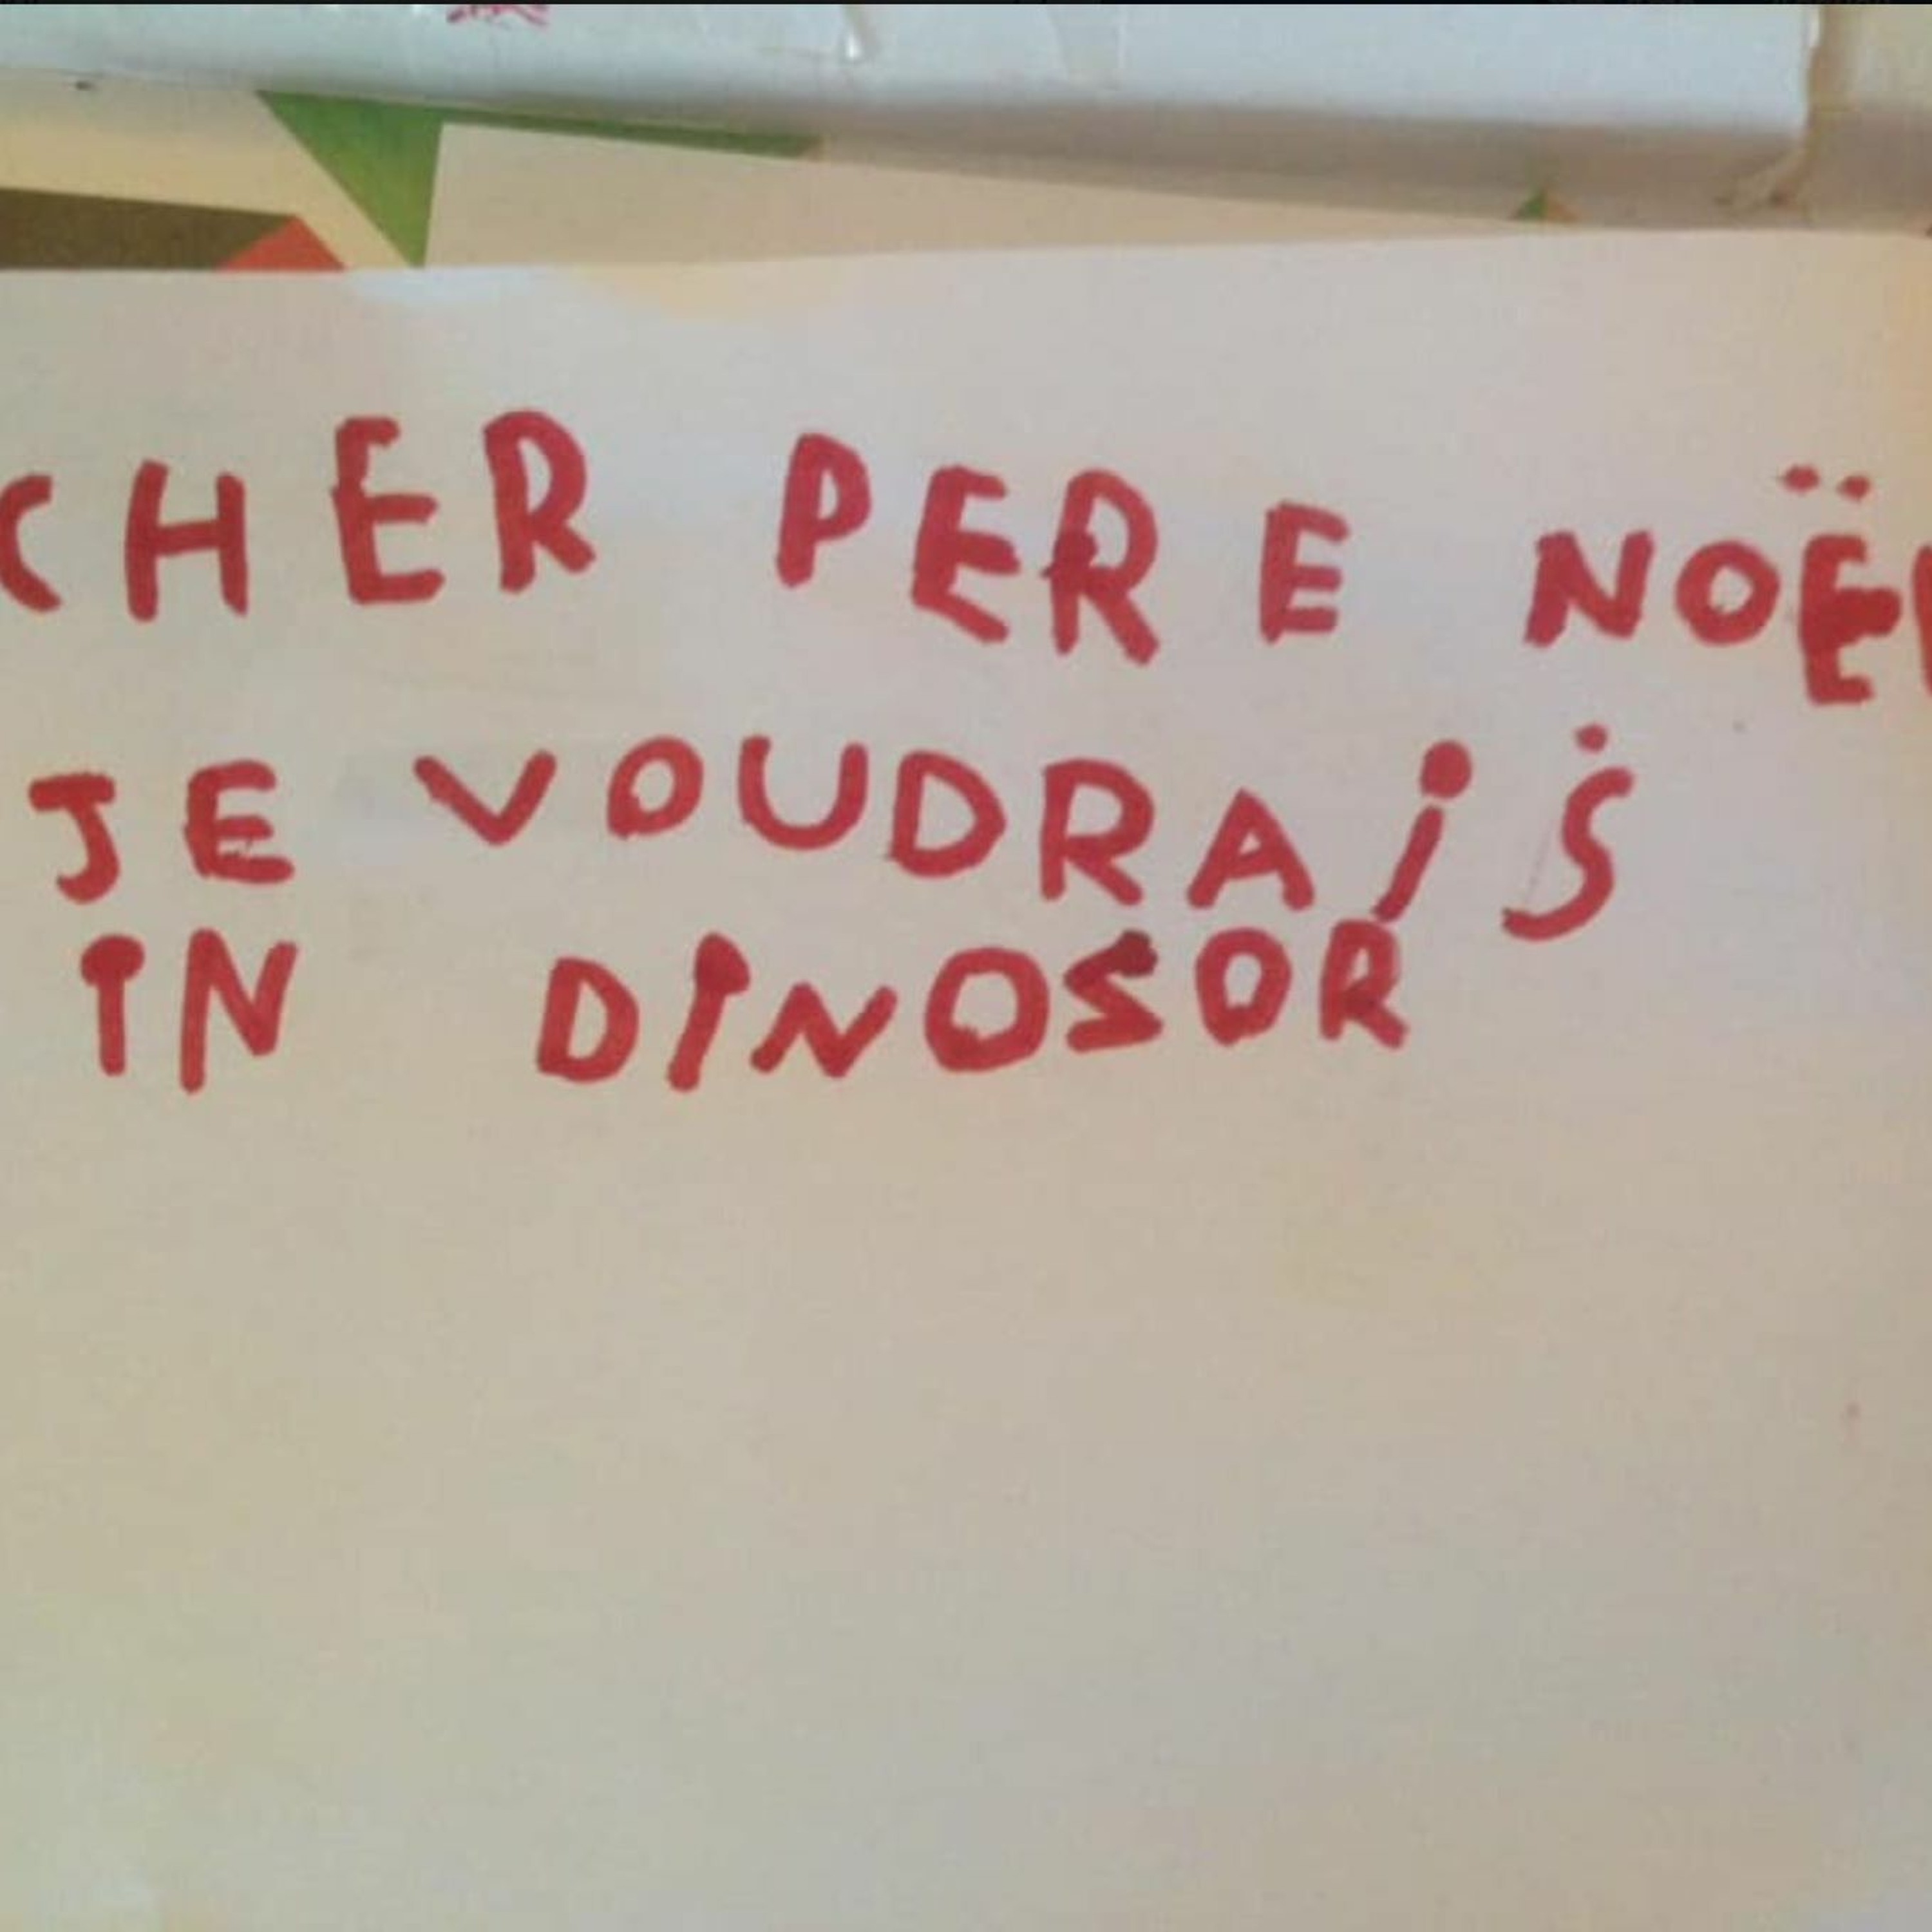 CHER PERE NOËL
JE VOUDRAiS
iN DiNOSOR